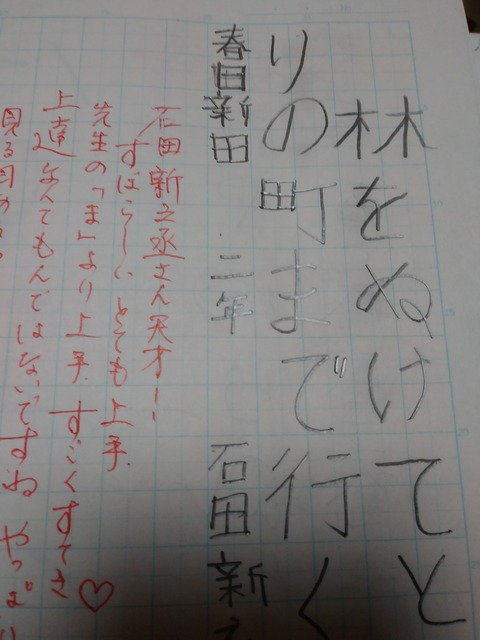 林をぬけてと
りの町まで行く
春日新田 二年 石田 新
石田 新之丞さん天才ー
すばらしい とても上手.
先生の「ま」より上手. すごくすてき♡
上達なんてもんではないですね やっぱり